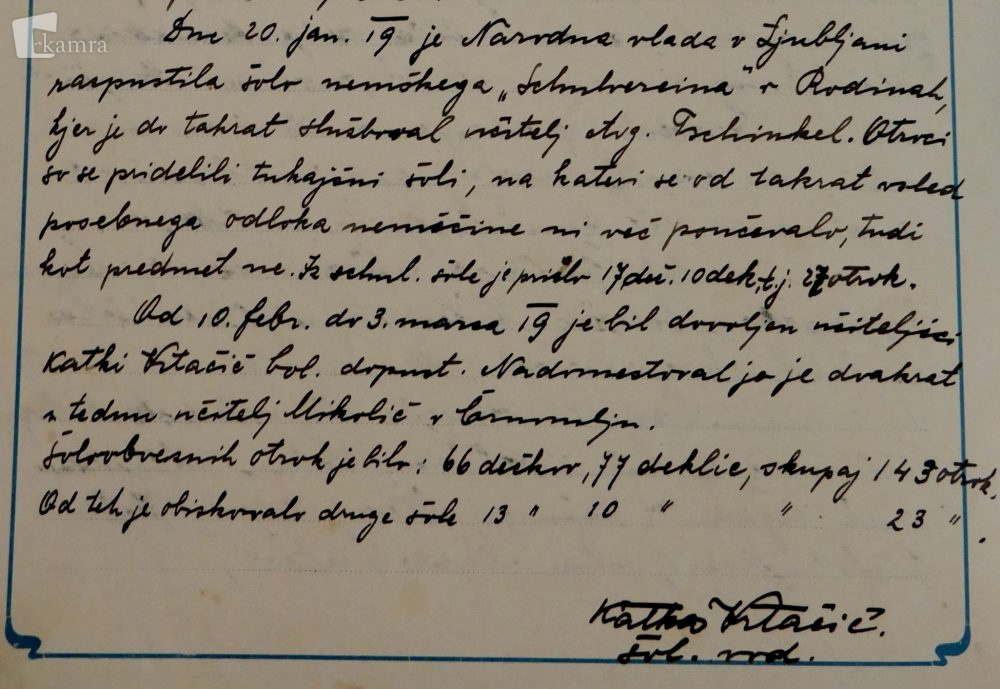 kamra
Dne 20. jan. 19 je Narodna vlada v Ljubljani
raspustila šolo nemškega „Schulvereina" v Rodinah,
kjer je do takrat služboval učitelj Avg. Tschinkel. Otroci
so se pridelili tukajšni šoli, na kateri se od takrat vsled
posebnega odloka nemščine ni več poučevalo, tudi
kot predmet ne. Iz schul. šole je prišlo 17 deč. 10 dek, t.j. 27 otrok.
Od 10. febr. do 3. marca 19 je bil dovoljen učiteljici
Katki Vrtačič bol. dopust. Nadomestoval jo je dvakrat
v tednu učitelj Mikolič v Črnomlju.
Šoloobveznih otrok je bilo: 66 dečkov, 77 deklic, skupaj 143 otrok.
Od teh je obiskovalo druge šole 13 " 10 " " 23 " .
Katka Vrtačič.
šol. vod.